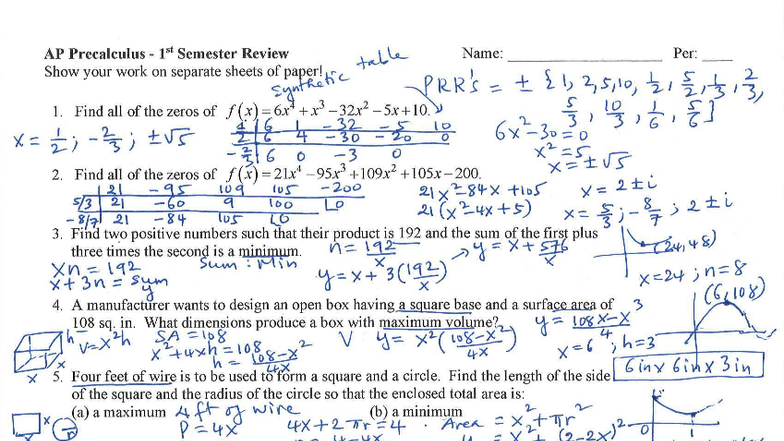 AP Precalculus - 1st Semester Review Name: ____________ Per: ____
Show your work on separate sheets of paper!
synthetic table
PRR's = ± {1, 2, 5, 10, 1/2, 5/2, 1/3, 2/3,
5/3, 10/3, 1/6, 5/6}
1. Find all of the zeros of f(x) = 6x⁴ + x³ – 32x² – 5x + 10.
x = 1/2; -2/3; ±√5
6 1 -32 -5 10
1/2 6 4 -30 -20 0
-2/3 6 0 -3 0
6x² - 30 = 0
x² = 5
x = ±√5
2. Find all of the zeros of f(x) = 21x⁴ – 95x³ + 109x² + 105x – 200.
21 -95 109 105 -200
5/3 21 -60 9 100 0
-8/7 21 -84 105 0
21x² - 84x + 105
21(x² - 4x + 5)
x = 2 ± i
x = 5/3; -8/7; 2 ± i
3. Find two positive numbers such that their product is 192 and the sum of the first plus
three times the second is a minimum.
xn = 192
x + 3n = sum
y
Sum: Min
n = 192/x
y = x + 3(192/x)
→ y = x + 576/x
(24, 48)
x = 24; n = 8
4. A manufacturer wants to design an open box having a square base and a surface area of
108 sq. in. What dimensions produce a box with maximum volume?
h
x
x
V = x²h
SA = 108
x² + 4xh = 108
h = 108-x²/4x
V y = x²(108-x²/4x)
y = 108x-x³
x = 6; h = 3
(6, 108)
6in x 6in x 3in
5. Four feet of wire is to be used to form a square and a circle. Find the length of the side
of the square and the radius of the circle so that the enclosed total area is:
(a) a maximum (b) a minimum
4 ft of wire
x
P = 4x
4x + 2πr = 4
Area = x² + πr²
0 1